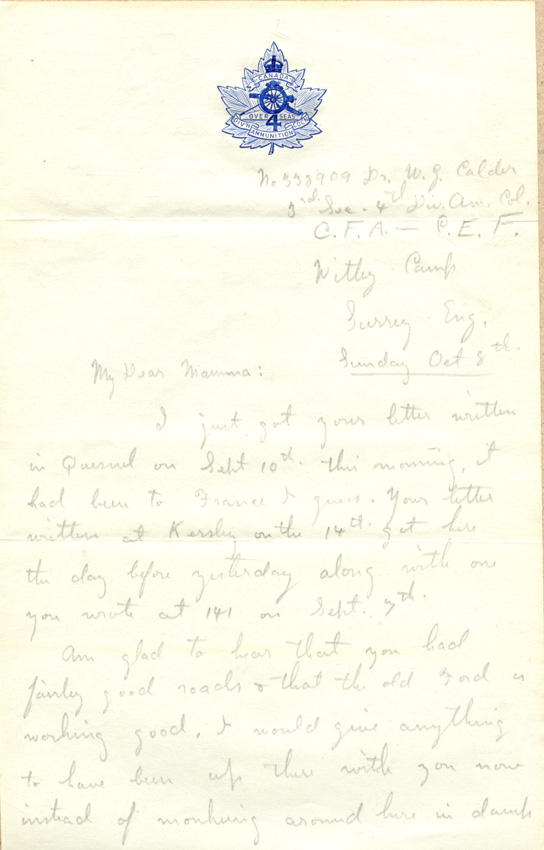 CANADA
OVER SEAS
4
DIV'N AMMUNITION COL
No 333909 Dr. W. J. Calder
3rd Sec. 4th Div. Am. Col.
C. F. A. — C. E. F.
Witley Camp
Surrey Eng.
Sunday Oct 8th.
My Dear Mamma:
I just got your letter written
in Quesnel on Sept 10th. this morning, it
had been to France I guess. Your letter
written at Kersley on the 14th. got here
the day before yesterday along with one
you wrote at 141 on Sept. 7th.
Am glad to hear that you had
fairley good roads & that the old Ford is
working good. I would give anything
to have been up there with you now
instead of monkeying around here in damp